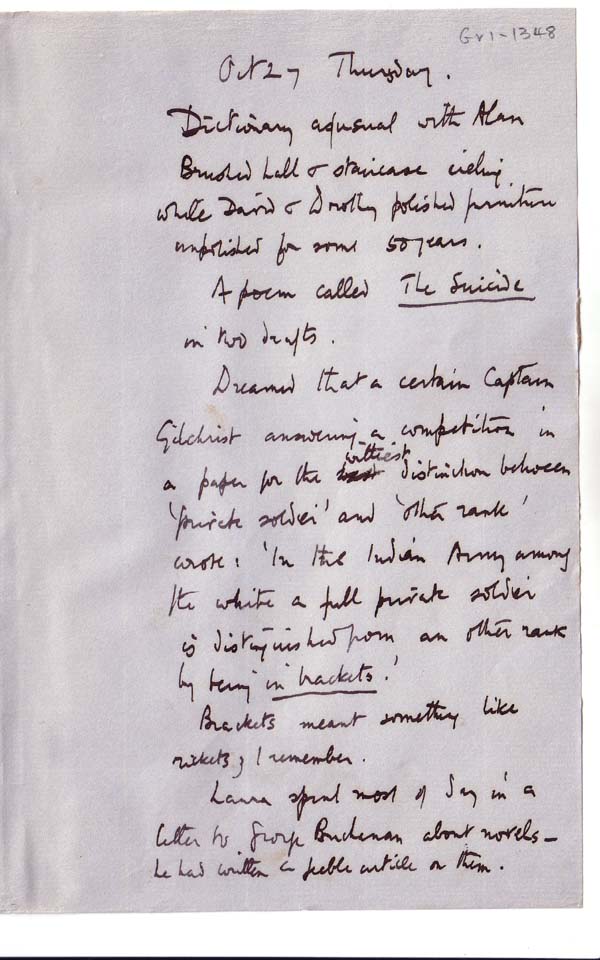 Gr1-1348
Oct 27 Thursday.
Dictionary as usual with Alan
Brushed hall & staircase ceiling
while David & Dorothy polished furniture
unpolished for some 50 years.
A poem called The Suicide
in two drafts.
Dreamed that a certain Captain
Gilchrist answering a competition in
a paper for the best wittiest distinction between
'private soldier' and 'other rank'
wrote: 'In the Indian Army among
the white a full private soldier
is distinguished from an other rank
by being in brackets.'
Brackets meant something like
rickets, I remember.
Laura spent most of day in a
letter to George Buchanan about novels –
he had written a feeble article on them.